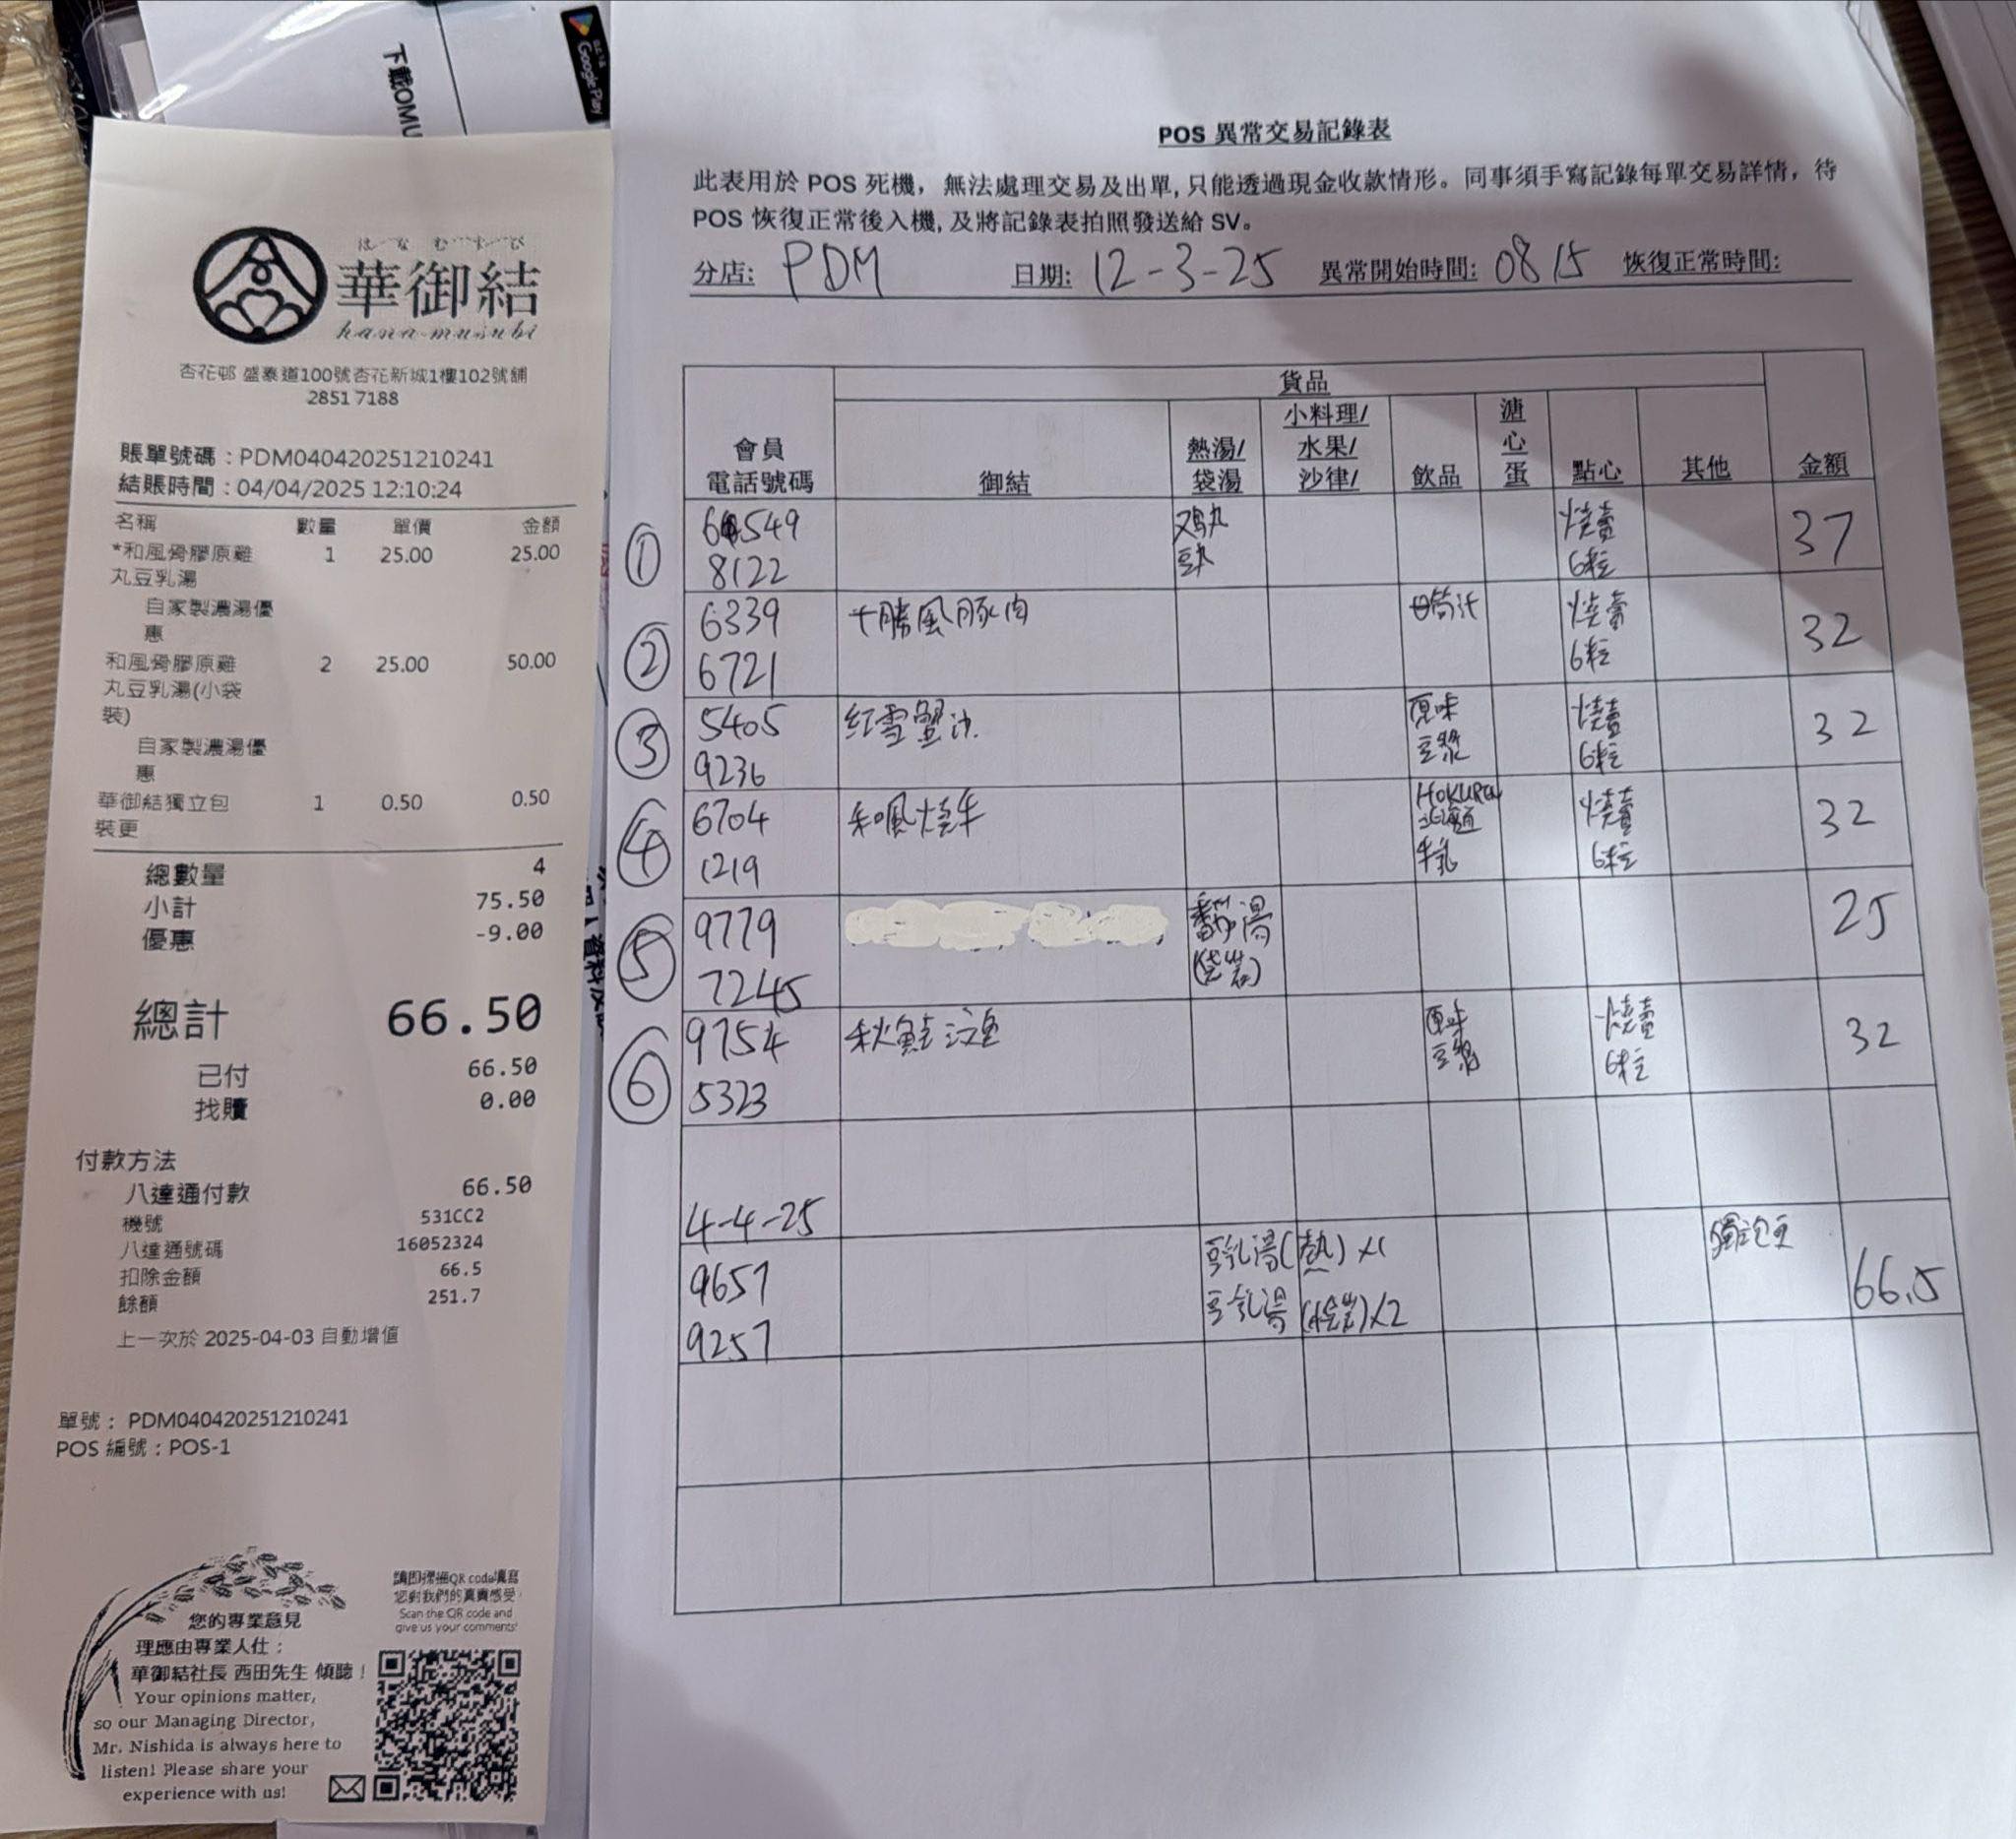 下載OMU
Google Play
華御結
hana-musubi
杏花邨 盛泰道100號杏花新城1樓102號舖
2851 7188
賬單號碼：PDM040420251210241
結賬時間：04/04/2025 12:10:24
名稱 數量 單價 金額
*和風骨膠原雞 1 25.00 25.00
丸豆乳湯
自家製濃湯優
惠
和風骨膠原雞 2 25.00 50.00
丸豆乳湯(小袋
裝)
自家製濃湯優
惠
華御結獨立包 1 0.50 0.50
裝更
總數量 4
小計 75.50
優惠 -9.00
總計 66.50
已付 66.50
找贖 0.00
付款方法
八達通付款 66.50
機號 531CC2
八達通號碼 16052324
扣除金額 66.5
餘額 251.7
上一次於 2025-04-03 自動增值
單號： PDM040420251210241
POS 編號：POS-1
您的專業意見
理應由專業人仕：
華御結社長 西田先生 傾聽！
Your opinions matter,
so our Managing Director,
Mr. Nishida is always here to
listen! Please share your
experience with us!
請即掃描QR code填寫
您對我們的真實感受
Scan the QR code and
give us your comments!
POS 異常交易記錄表
此表用於 POS 死機，無法處理交易及出單, 只能透過現金收款情形。同事須手寫記錄每單交易詳情，待
POS 恢復正常後入機, 及將記錄表拍照發送給 SV。
分店: PDM 日期: 12-3-25 異常開始時間: 0815 恢復正常時間:
貨品
會員
電話號碼
御結
熱湯/
袋湯
小料理/
水果/
沙律/
飲品
溏
心
蛋
點心
其他
金額
① 549 燒賣 37
8122 6粒
② 6339 十勝風豚肉 燒賣 32
6721 6粒
③ 5405 紅雪蟹 原味 燒賣 32
9236 豆漿 6粒
④ 6704 和風燒牛 HOKUREN 燒賣 32
1219 牛乳 6粒
⑤ 9779 湯 25
7245 (袋裝)
⑥ 9754 秋鮭 原味 燒賣 32
5323 豆漿 6粒
4-4-25
9657 豆乳湯(熱) x1 66.5
9257 豆乳湯 x2